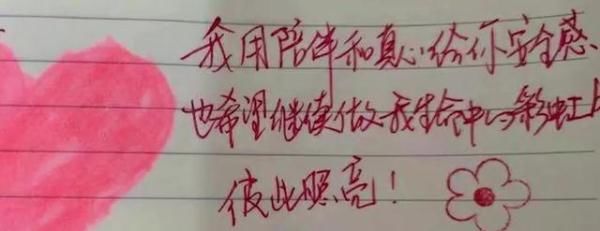 我用陪伴和真心给你安全感、
也希望继续做我生命中的彩虹
彼此照亮！